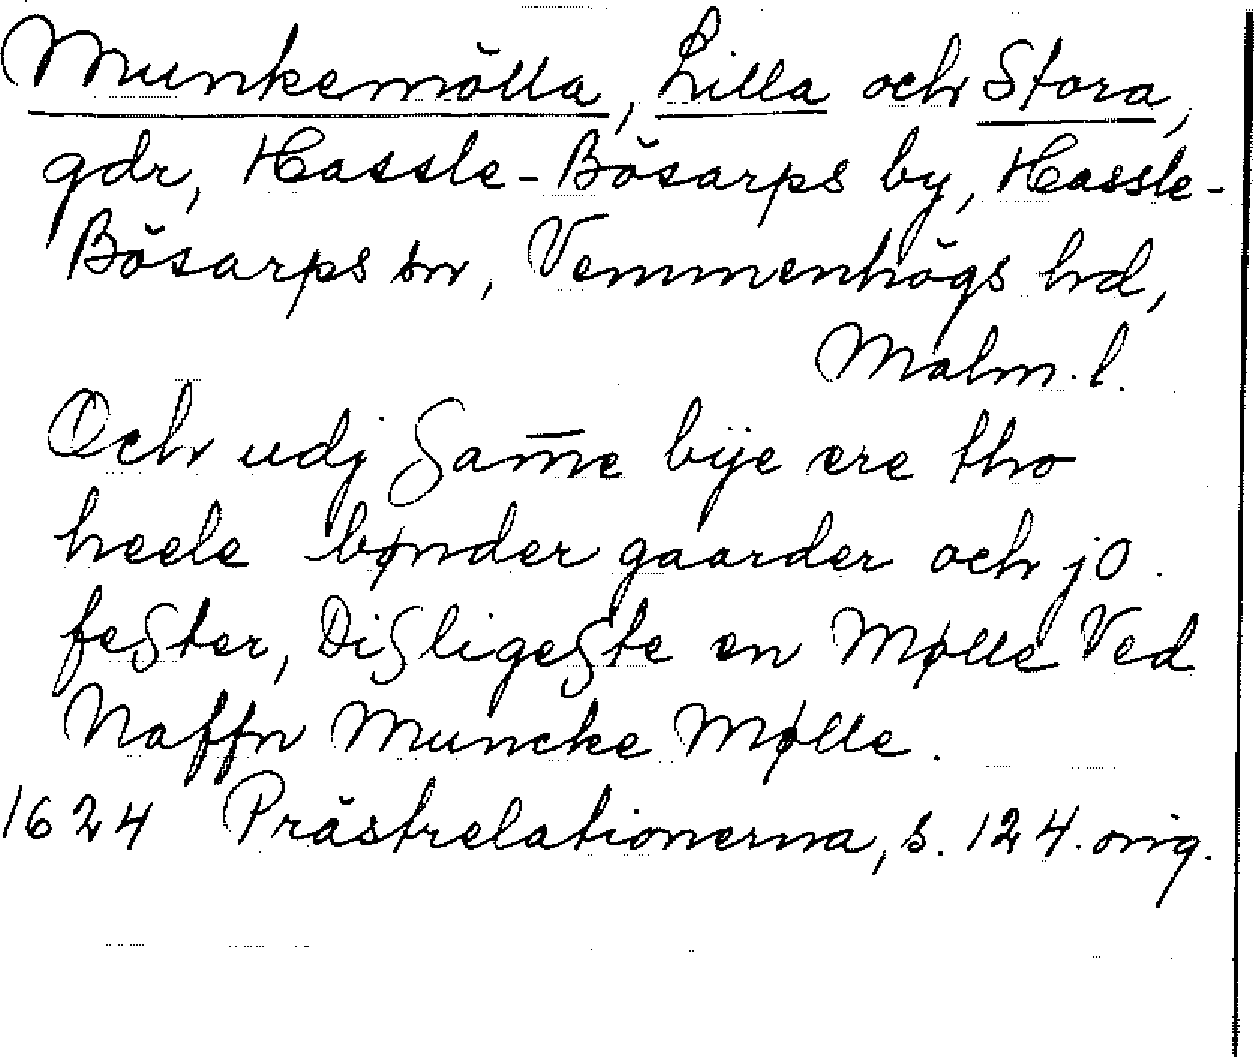 Munkemölla, Lilla och Stora,
gdr, Hassle-Bösarps by, Hassle-
Bösarps sn, Vemmenhögs hd,
Malm. l.
Och udj Sam̅e bÿe ere tho
heele bønder gaarder och jO
fester, Disligeste en Mølle Ved
Naffn Muncke Mølle.
1624 Prästrelationerna, s. 124. orig.